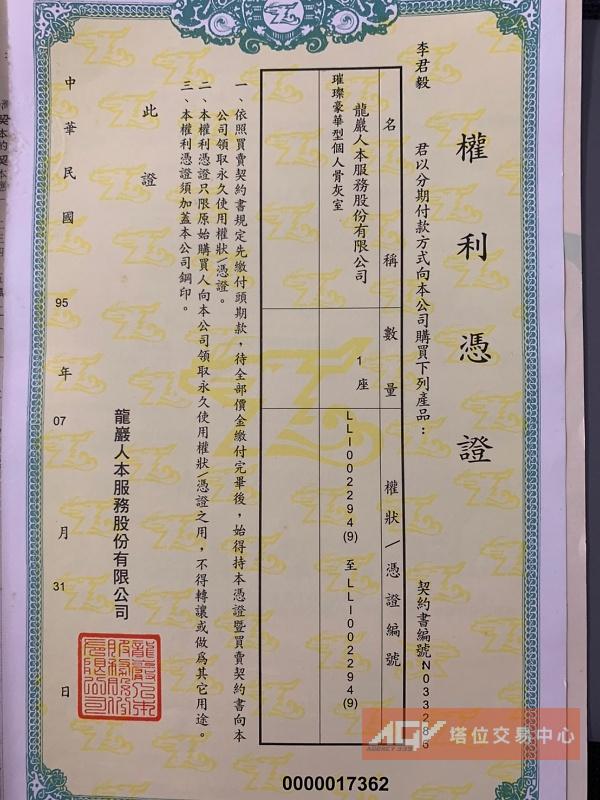 權利憑證
契約書編號N033285
李君毅 君以分期付款方式向本公司購買下列產品：
名稱 數量 權狀/憑證編號
龍巖人本服務股份有限公司 1座 LL1002294(9) 至 LL1002294(9)
璀璨豪華型個人骨灰室
一、依照買賣契約書規定先繳付頭期款，待全部價金繳付完畢後，始得持本憑證暨買賣契約書向本
公司領取永久使用權狀/憑證。
二、本權利憑證只限原始購買人向本公司領取永久使用權狀/憑證之用，不得轉讓或做為其它用途。
三、本權利憑證須加蓋本公司鋼印。
此證
龍巖人本服務股份有限公司
中華民國 95 年 07 月 31 日
0000017362
AGV 塔位交易中心
AGENCY 999